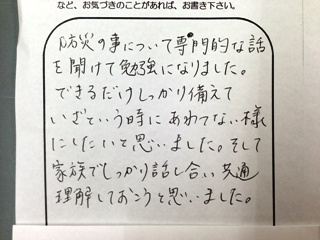 など、お気づきのことがあれば、お書き下さい。
防災の事について専門的な話
を聞けて勉強になりました。
できるだけしっかり備えて
いざという時にあわてない様
にしたいと思いました。そして
家族でしっかり話し合い共通
理解しておこうと思いました。